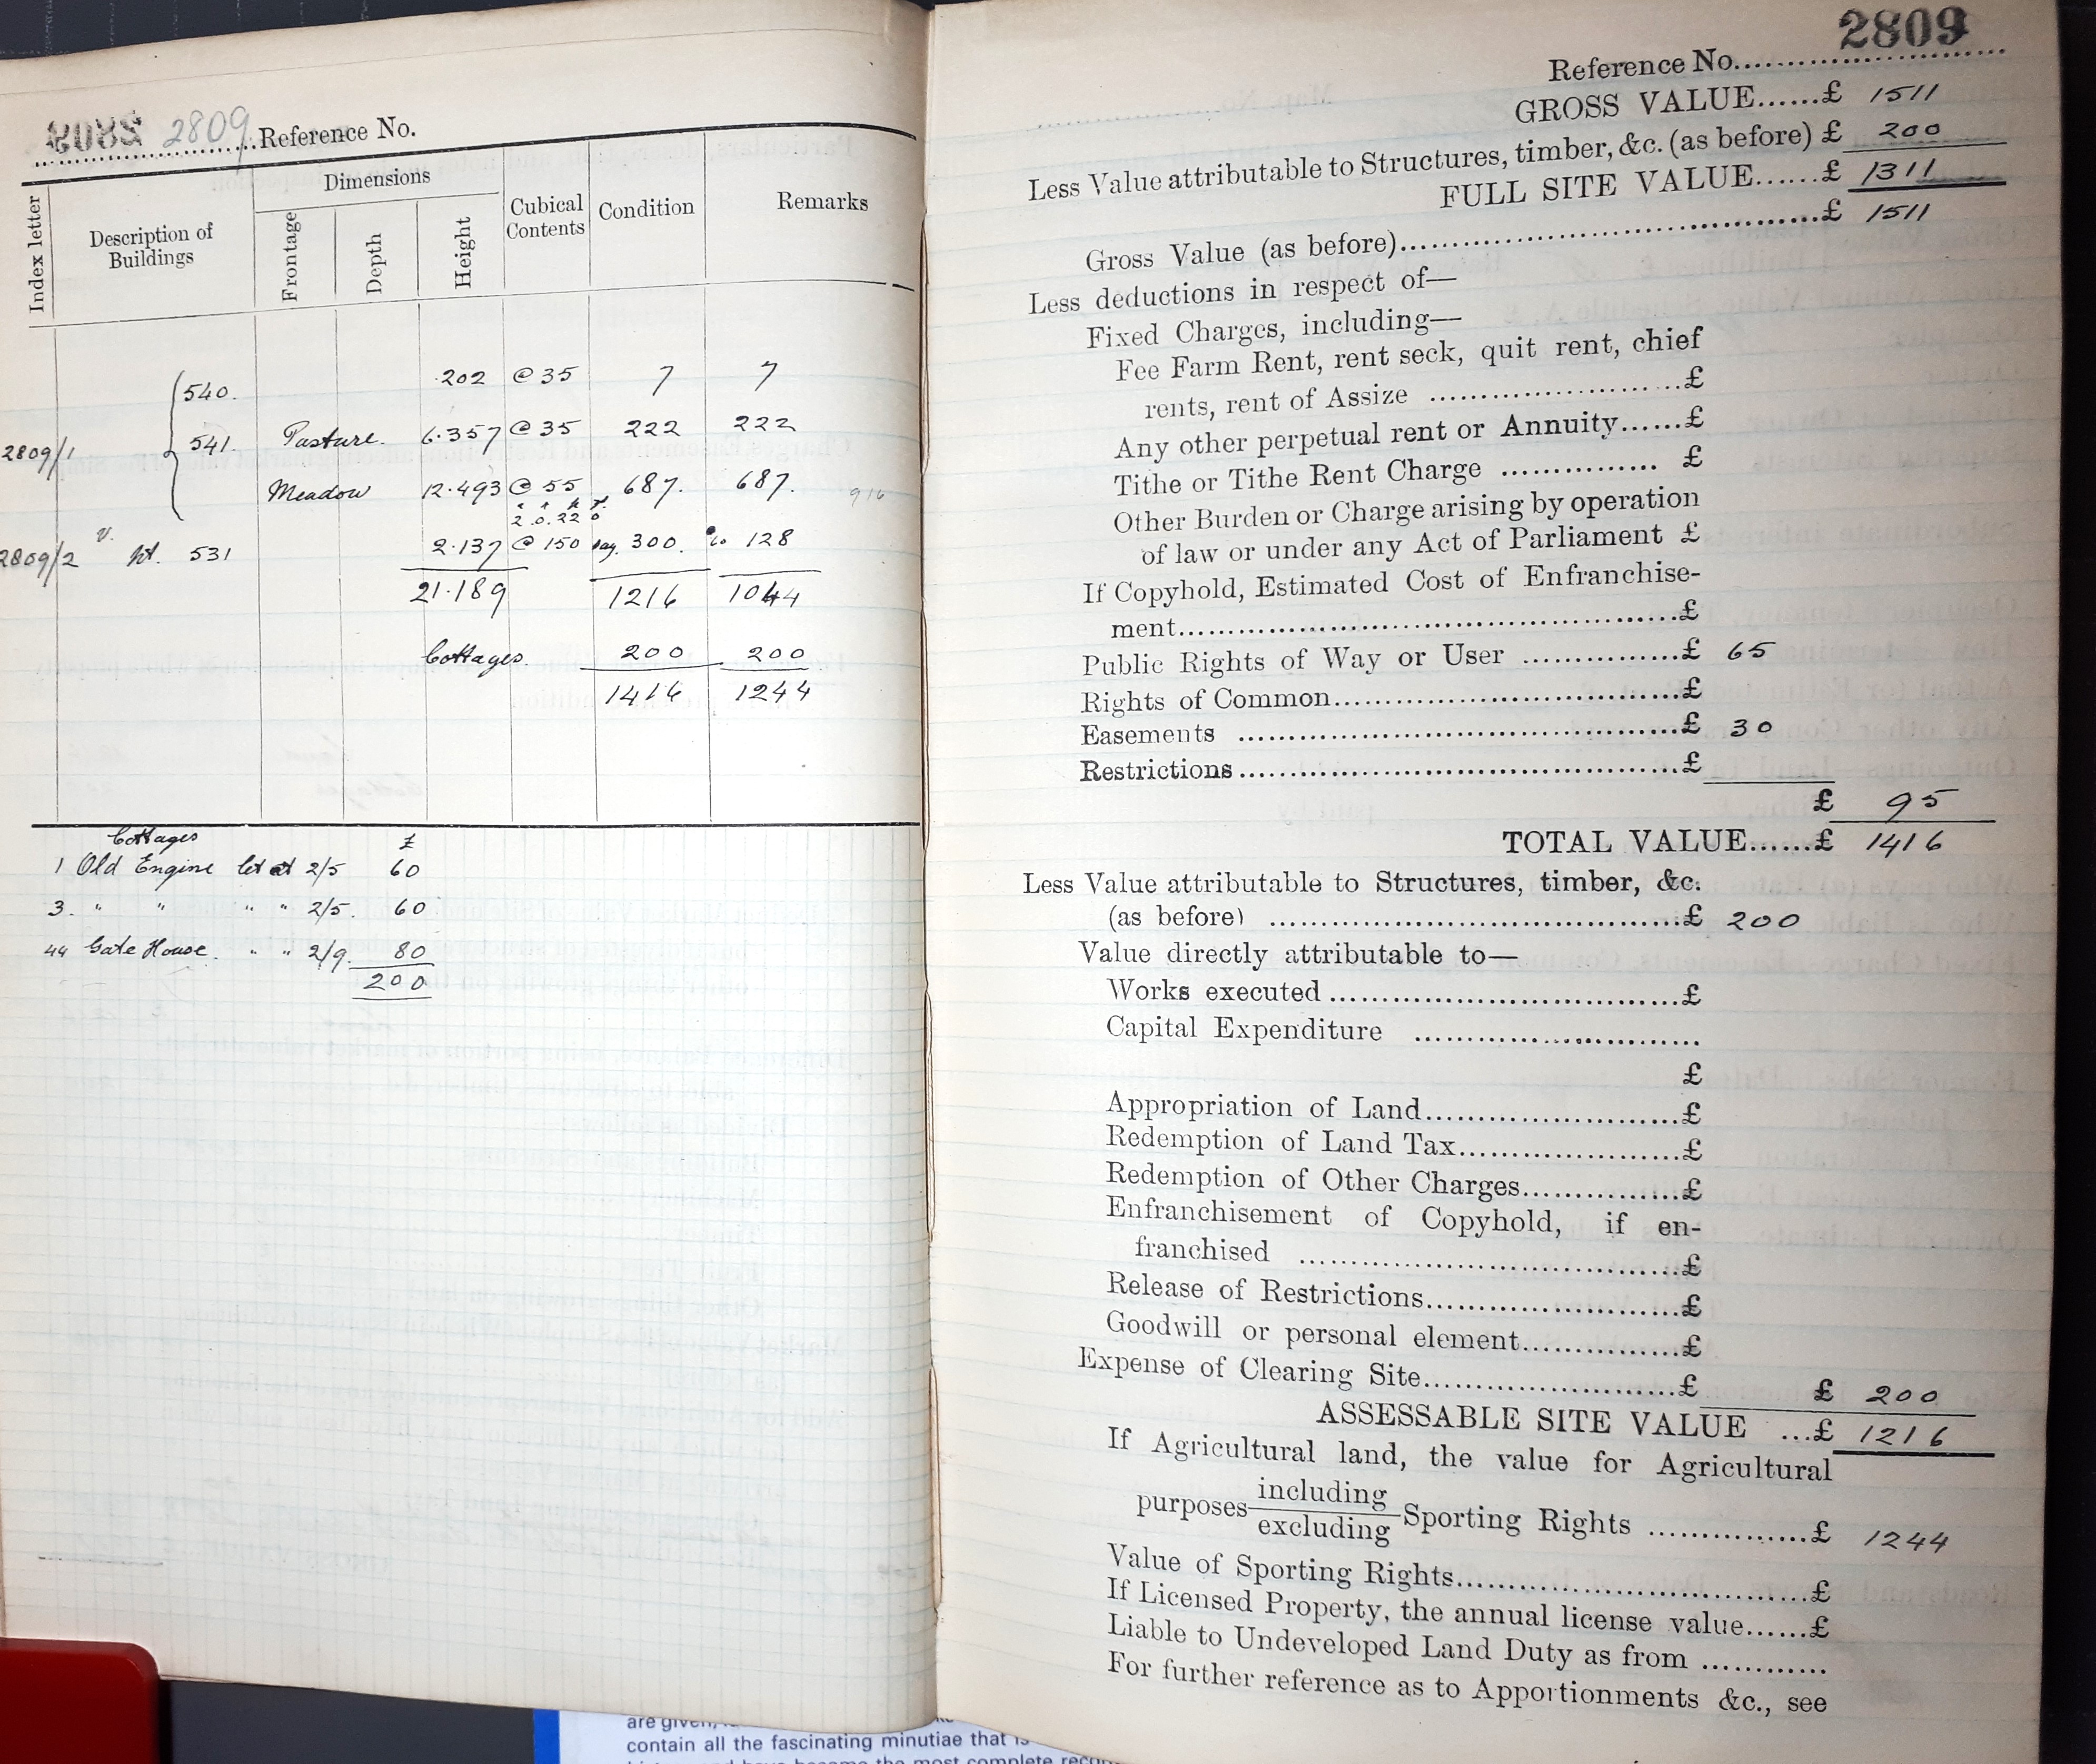 2809 Reference No.
Index letter
Description of Buildings
Dimensions
Frontage
Depth
Height
Cubical Contents
Condition
Remarks
540. .202 @ 35 7 7
2809/1 541. Pasture. 6.357 @ 35 222 222
Meadow 12.493 @ 55 687. 687. 916
2.0.22 0
2809/2 v. pt. 531 2.137 @ 150 say 300. @ 60 128
21.189 1216 1044
Cottages. 200 200
1416 1244
Cottages £
1 Old Engine let at 2/5 60
3. " " " " 2/5. 60
44 Gate House. " " 2/9. 80
200
2809
Reference No.
GROSS VALUE......£ 1511
Less Value attributable to Structures, timber, &c. (as before) £ 200
FULL SITE VALUE......£ 1311
Gross Value (as before)......£ 1511
Less deductions in respect of—
Fixed Charges, including—
Fee Farm Rent, rent seck, quit rent, chief
rents, rent of Assize ......£
Any other perpetual rent or Annuity......£
Tithe or Tithe Rent Charge ...... £
Other Burden or Charge arising by operation
of law or under any Act of Parliament £
If Copyhold, Estimated Cost of Enfranchise-
ment......£
Public Rights of Way or User ......£ 65
Rights of Common......£
Easements ......£ 30
Restrictions......£
£ 95
TOTAL VALUE......£ 1416
Less Value attributable to Structures, timber, &c.
(as before) ......£ 200
Value directly attributable to—
Works executed......£
Capital Expenditure ......
£
Appropriation of Land......£
Redemption of Land Tax......£
Redemption of Other Charges......£
Enfranchisement of Copyhold, if en-
franchised ......£
Release of Restrictions......£
Goodwill or personal element......£
Expense of Clearing Site......£ £ 200
ASSESSABLE SITE VALUE ...£ 1216
If Agricultural land, the value for Agricultural
purposes including
excluding Sporting Rights ......£ 1244
Value of Sporting Rights......£
If Licensed Property, the annual license value......£
Liable to Undeveloped Land Duty as from ......
For further reference as to Apportionments &c., see
are given,
contain all the fascinating minutiae that is